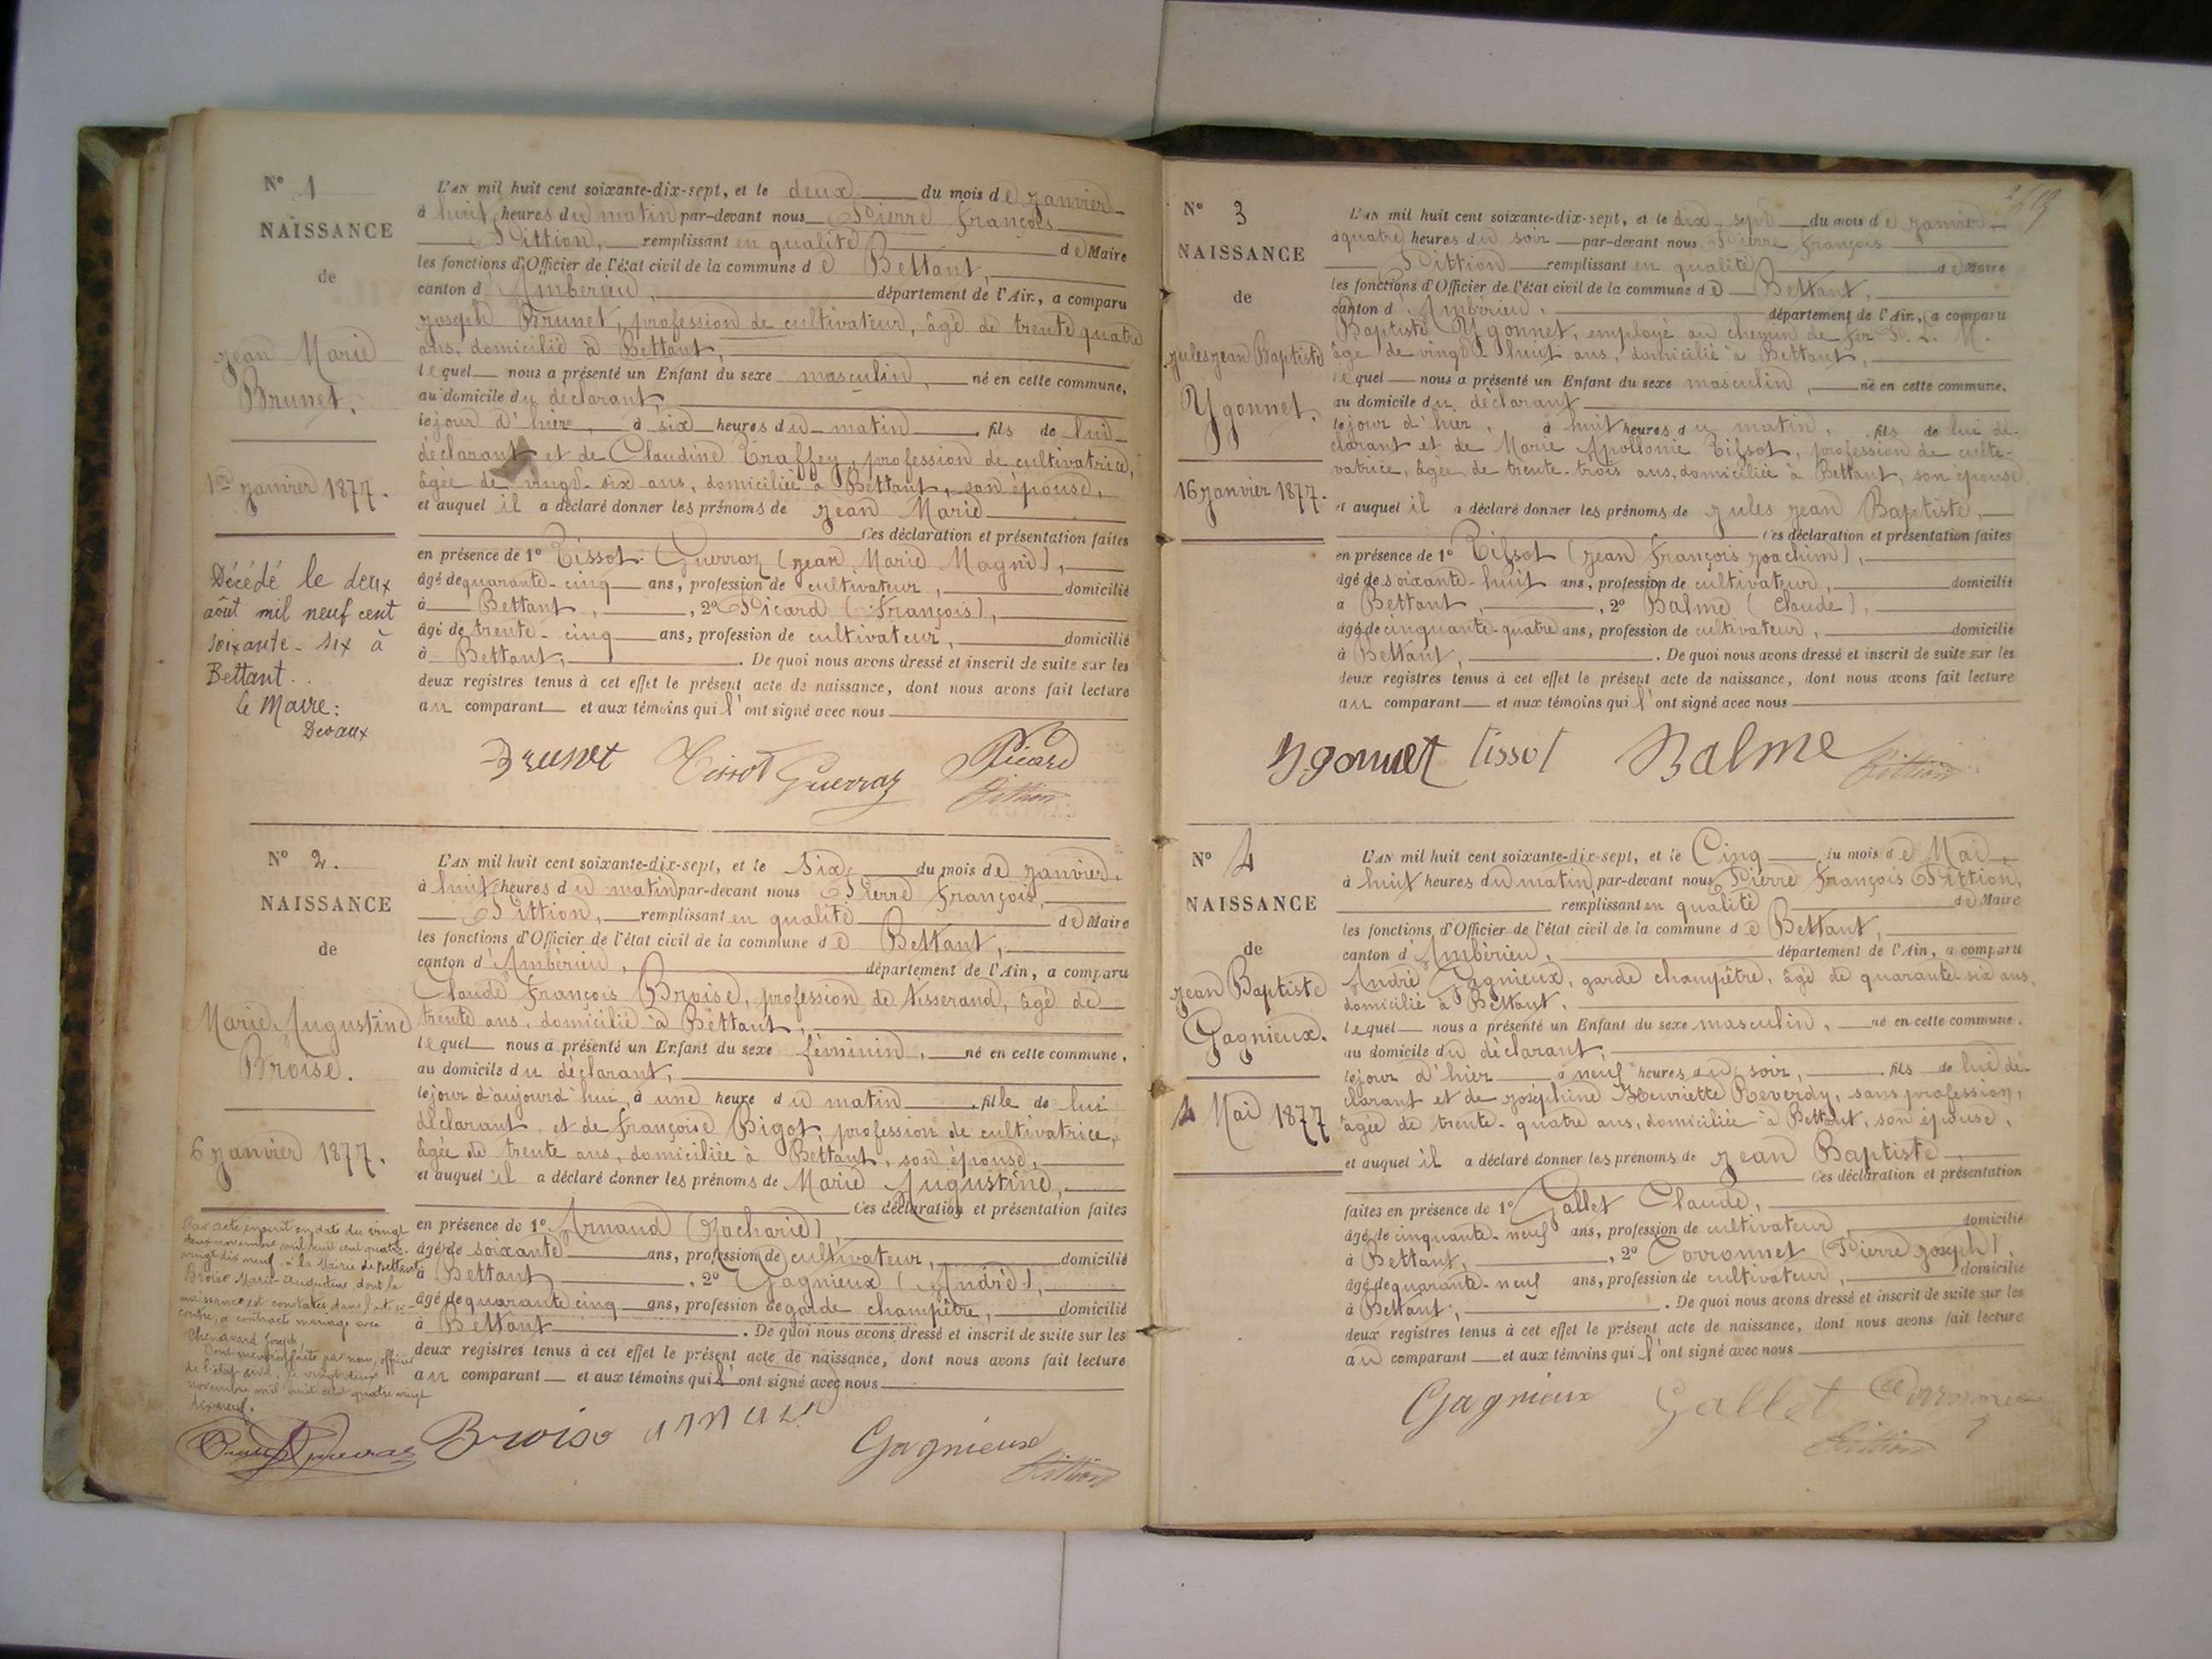 N° 1
NAISSANCE
de
Jean Marie
Brunet.
1er Janvier 1877.
Décédé le deux
août mil neuf cent
soixante-six à
Bettant.
le Maire:
Devaux
L'AN mil huit cent soixante-dix-sept, et le deux du mois de Janvier
à huit heures du matin par-devant nous Pierre François
Pittion, remplissant en qualité de Maire
les fonctions d'Officier de l'état civil de la commune de Bettant,
canton d'Ambérieu, département de l'Ain, a comparu
Joseph Brunet, profession de cultivateur, âgé de trente quatre
ans, domicilié à Bettant,
lequel nous a présenté un Enfant du sexe masculin, né en cette commune,
au domicile du déclarant,
le jour d'hier, à six heures du matin, fils de lui
déclarant et de Claudine Traffey, profession de cultivatrice,
âgée de vingt-six ans, domiciliée à Bettant, son épouse,
et auquel il a déclaré donner les prénoms de Jean Marie
Ces déclaration et présentation faites
en présence de 1° Tissot-Guerraz (Jean Marie Magni),
âgé de quarante-cinq ans, profession de cultivateur, domicilié
à Bettant, 2° Picard (François),
âgé de trente-cinq ans, profession de cultivateur, domicilié
à Bettant, . De quoi nous avons dressé et inscrit de suite sur les
deux registres tenus à cet effet le présent acte de naissance, dont nous avons fait lecture
au comparant et aux témoins qui l'ont signé avec nous
Brunet Tissot Guerraz Picard
Pittion
N° 2.
NAISSANCE
de
Marie Augustine
Broise.
6 Janvier 1877.
Par acte inscrit en date du vingt
deux novembre mil huit cent quatre-
vingt dix neuf, à la Mairie de Bettant
Broise Marie-Augustine dont la
naissance est constatée dans l'acte ci-
contre, a contracté mariage avec
Chenavard Joseph.
Dont mention faite par nous, officier
de l'état civil, le vingt deux
novembre mil huit cent quatre vingt
dix neuf.
L'AN mil huit cent soixante-dix-sept, et le Six du mois de Janvier.
à huit heures du matin par-devant nous Pierre François,
Pittion, remplissant en qualité de Maire
les fonctions d'Officier de l'état civil de la commune de Bettant,
canton d'Ambérieu, département de l'Ain, a comparu
Claude François Broise, profession de Tisserand, âgé de
trente ans, domicilié à Bettant,
lequel nous a présenté un Enfant du sexe féminin, né en cette commune,
au domicile du déclarant,
le jour d'aujourd'hui, à une heure du matin, fille de lui
déclarant, et de Françoise Bigot, profession de cultivatrice,
âgée de trente ans, domiciliée à Bettant, son épouse,
et auquel il a déclaré donner les prénoms de Marie Augustine,
Ces déclaration et présentation faites
en présence de 1° Arnaud (Zacharie),
âgé de soixante ans, profession de cultivateur, domicilié
à Bettant, 2° Gagnieux (André),
âgé de quarante cinq ans, profession de garde champêtre, domicilié
à Bettant . De quoi nous avons dressé et inscrit de suite sur les
deux registres tenus à cet effet le présent acte de naissance, dont nous avons fait lecture
au comparant et aux témoins qui l'ont signé avec nous
Broise Arnaud Gagnieux
Pittion
N° 3
NAISSANCE
de
Jules Jean Baptiste
Ygonnet.
16 Janvier 1877.
L'AN mil huit cent soixante-dix-sept, et le dix-sept du mois de Janvier
à quatre heures du soir par-devant nous Pierre François
Pittion remplissant en qualité de Maire
les fonctions d'Officier de l'état civil de la commune de Bettant,
canton d'Ambérieu, département de l'Ain, a comparu
Baptiste Ygonnet, employé au chemin de fer P. L. M.
âgé de vingt huit ans, domicilié à Bettant,
lequel nous a présenté un Enfant du sexe masculin, né en cette commune.
au domicile du déclarant
le jour d'hier, à huit heures du matin, fils de lui dé-
clarant et de Marie Apollonie Tissot, profession de culti-
vatrice, âgée de trente-trois ans, domiciliée à Bettant, son épouse
et auquel il a déclaré donner les prénoms de Jules Jean Baptiste,
Ces déclaration et présentation faites
en présence de 1° Tissot (Jean François Joachim),
âgé de soixante-huit ans, profession de cultivateur, domicilié
à Bettant, 2° Balme (Claude),
âgé de cinquante-quatre ans, profession de cultivateur, domicilié
à Bettant, . De quoi nous avons dressé et inscrit de suite sur les
deux registres tenus à cet effet le présent acte de naissance, dont nous avons fait lecture
au comparant et aux témoins qui l'ont signé avec nous
Ygonnet Tissot Balme Pittion
N° 4
NAISSANCE
de
Jean Baptiste
Gagnieux.
4 Mai 1877
L'AN mil huit cent soixante-dix-sept, et le Cinq du mois de Mai,
à huit heures du matin par-devant nous Pierre François Pittion,
remplissant en qualité de Maire
les fonctions d'Officier de l'état civil de la commune de Bettant,
canton d'Ambérieu, département de l'Ain, a comparu
André Gagnieux, garde champêtre, âgé de quarante-six ans,
domicilié à Bettant,
lequel nous a présenté un Enfant du sexe masculin, né en cette commune.
au domicile du déclarant,
le jour d'hier à neuf heures du soir, fils de lui dé-
clarant et de Joséphine Henriette Reverdy, sans profession,
âgée de trente-quatre ans, domiciliée à Bettant, son épouse,
et auquel il a déclaré donner les prénoms de Jean Baptiste
Ces déclaration et présentation
faites en présence de 1° Gallet Claude,
âgé de cinquante-neuf ans, profession de cultivateur, domicilié
à Bettant, 2° Corronnet (Pierre Joseph),
âgé de quarante-neuf ans, profession de cultivateur, domicilié
à Bettant, . De quoi nous avons dressé et inscrit de suite sur les
deux registres tenus à cet effet le présent acte de naissance, dont nous avons fait lecture
au comparant et aux témoins qui l'ont signé avec nous
Gagnieux Gallet
Pittion